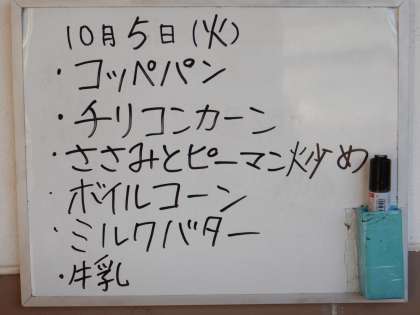 10月5日(火)
・コッペパン
・チリコンカーン
・ささみとピーマン炒め
・ボイルコーン
・ミルクバター
・牛乳